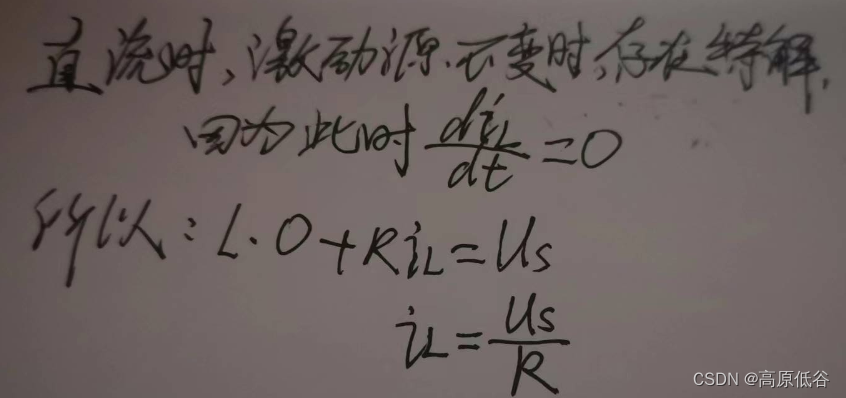 直流时,激励源不变时,存在特解,
因为此时 diL/dt = 0
所以: L·0+RiL=Us
iL = Us/R
CSDN @高原低谷